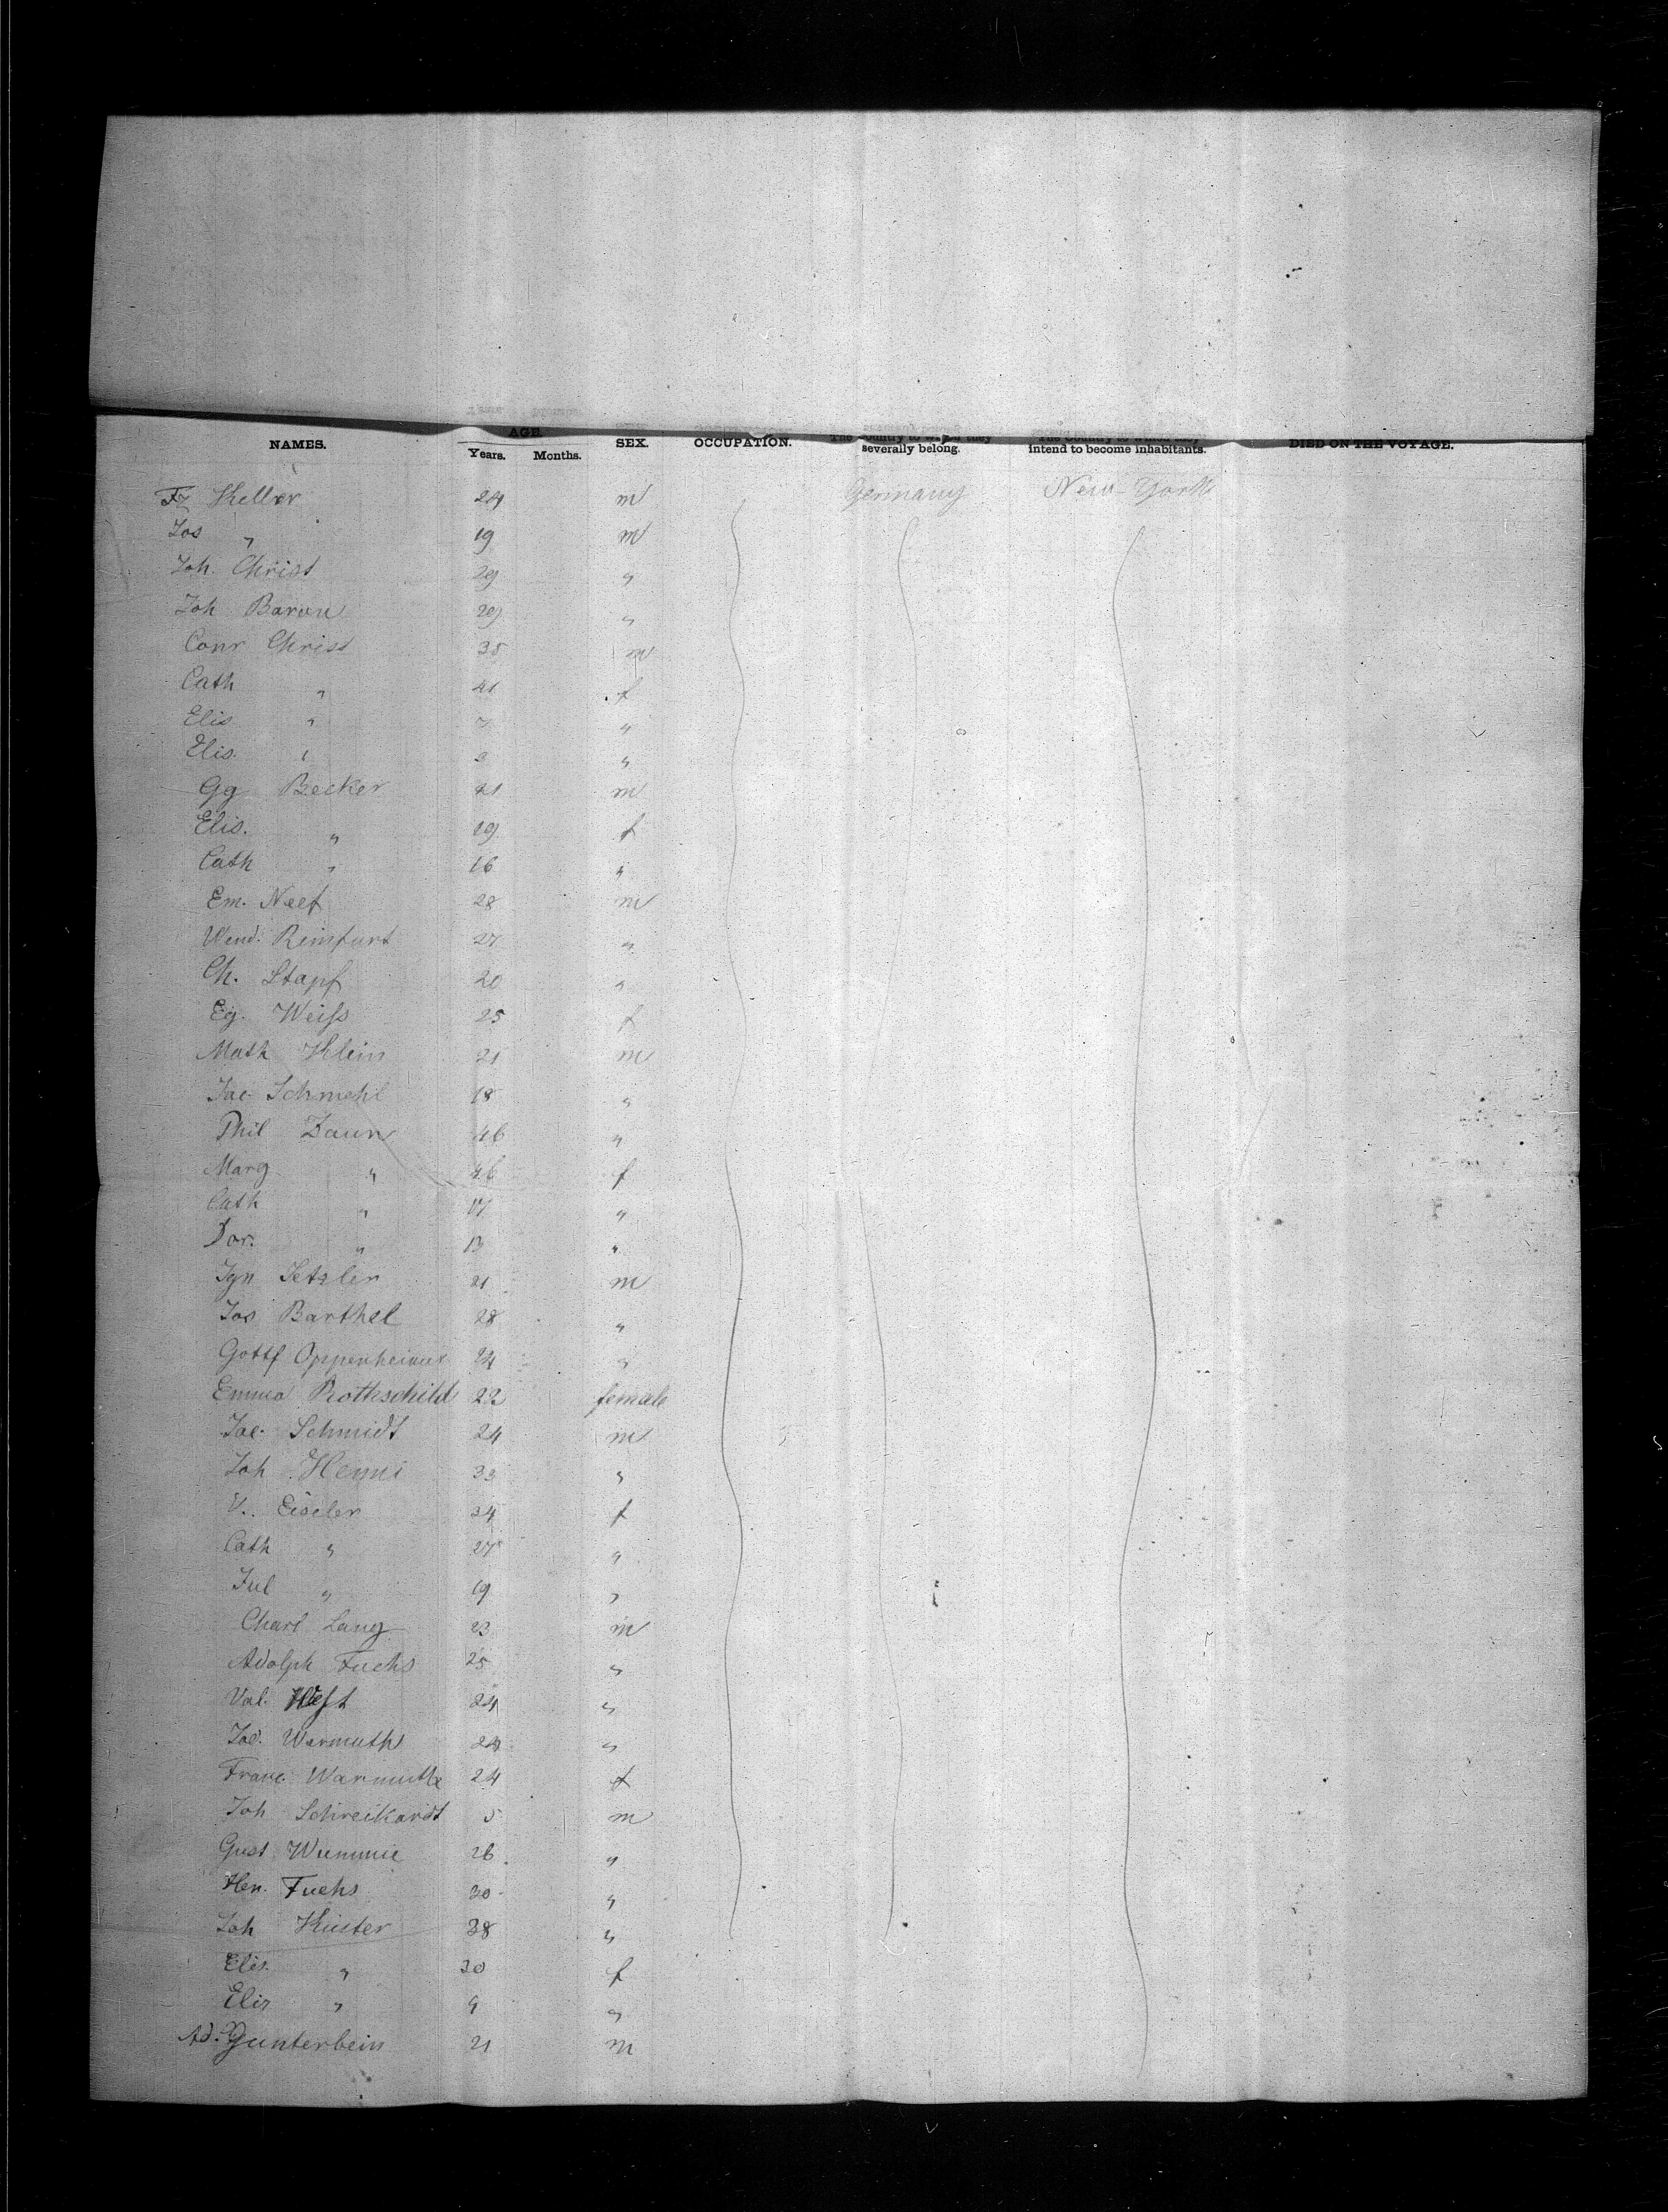 NAMES. AGE. Years. Months. SEX. OCCUPATION. The Country to which they severally belong. The Country to which they intend to become inhabitants. DIED ON THE VOYAGE.
Fz Keller 24 m Germany New-York
Jos " 19 m
Joh. Christ 29 "
Joh Baron 29 "
Conr Christ 35 m
Cath " 41 f
Elis " 7 "
Elis. " "
Gg Becker 21 m
Elis. " 19 f
Cath " 16 "
Em. Neef 28 m
Wend. Reinfurt 27 "
Ch. Stapf 20 "
Eg. Weiss 25 f
Math Klein 21 m
Jac Schmehl 18 "
Phil Daun 46 "
Marg " 46 f
Cath " 17 "
Dor. " 13 "
Ign Setzler 21 m
Jos Barthel 28 "
Gottf Oppenheimer 24 "
Emma Rothschild 22 female
Jac. Schmidt 24 m
Joh Henni 33 "
V. Eiseler 34 f
Cath " 27 "
Jul " 19 "
Charl Lang 23 m
Adolph Fuchs 25 "
Val. 24 "
Jac. Warmuth 24 "
Franc. Warmuth 24 f
Joh Schreikardt 5 m
Gust Wumme 26 "
Hen. Fuchs 30 "
Joh Küster 38 "
Elis. " 30 f
Elis " 9 "
Ad. Gunterbein 21 m